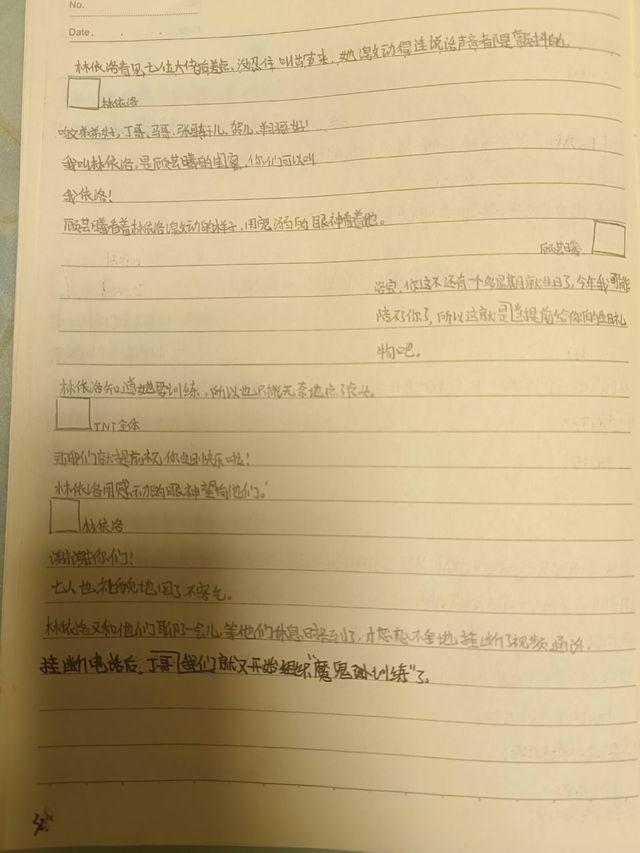 No.
Date
林依洛看见七位大佬后差点没忍住叫出声来,她激动得连说话声音都是颤抖的。
林依洛
丁哥,马哥,张哥,贺儿,
我叫林依洛,是顾芸曦的闺蜜,你们可以叫
我依洛!
顾芸曦看着林依洛激动的样子,用宠溺的眼神看着她。
顾芸曦
洛宝,你这不还有一个多星期就生日了,今年我可能
陪不了你了,所以这就是提前给你的生日礼
物吧。
林依洛知道她要训练,所以也只能无奈地点了点头。
TNT全体
那我们就提前祝你生日快乐啦!
林依洛用感动的眼神望向他们。
林依洛
谢谢你们!
七人也礼貌地回了不客气。
林依洛又和他们聊了一会儿,等他们休息时间到了,才恋恋不舍地挂断了视频通话。
挂断电话后,丁哥他们就又开始继续“魔鬼训练”了。